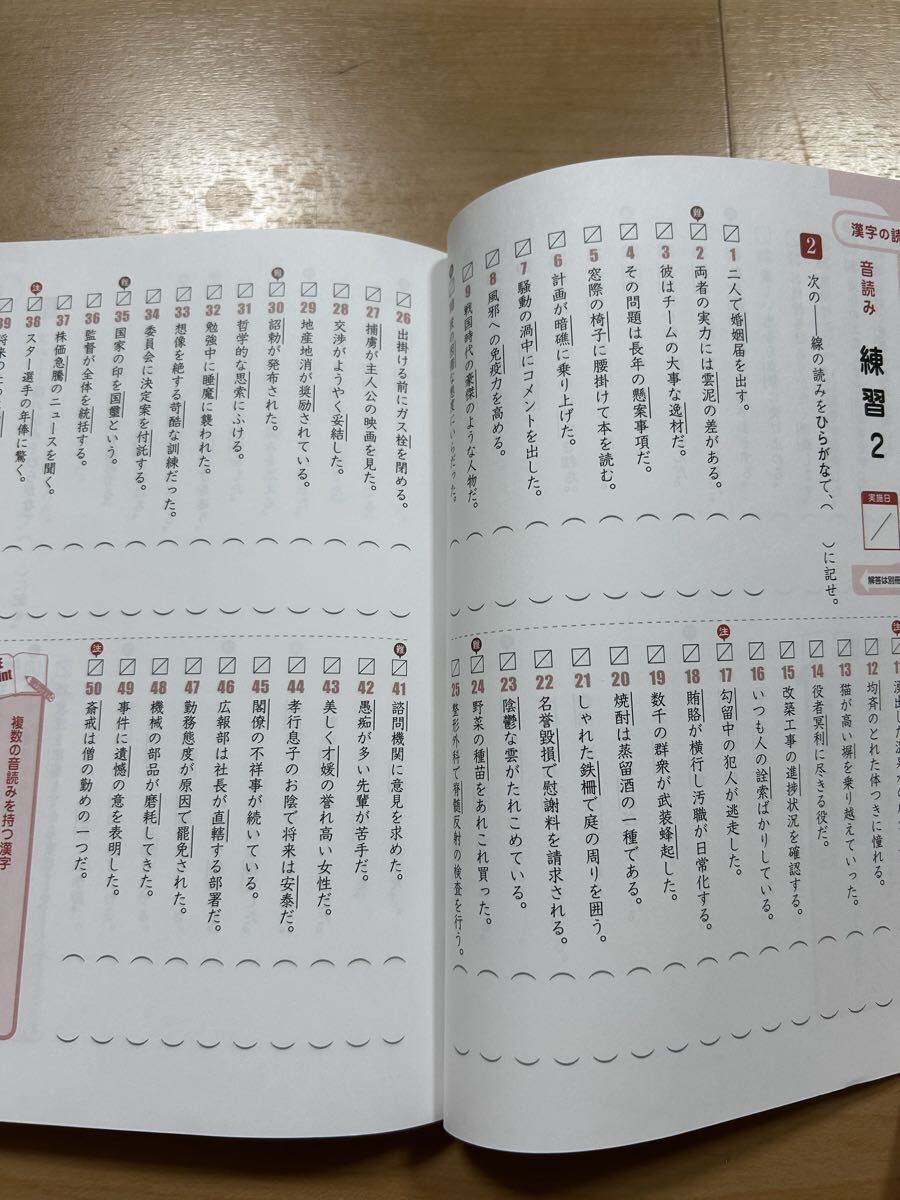 漢字の読
音読み 練習2
実施日
解答は別冊
2 次の――線の読みをひらがなで、( )に記せ。
1 二人で婚姻届を出す。
難
2 両者の実力には雲泥の差がある。
3 彼はチームの大事な逸材だ。
4 その問題は長年の懸案事項だ。
5 窓際の椅子に腰掛けて本を読む。
6 計画が暗礁に乗り上げた。
7 騒動の渦中にコメントを出した。
8 風邪への免疫力を高める。
9 戦国時代の豪傑のような人物だ。
注
11
12 均斉のとれた体つきに憧れる。
13 猫が高い塀を乗り越えていった。
14 役者冥利に尽きる役だ。
15 改築工事の進捗状況を確認する。
16 いつも人の詮索ばかりしている。
注
17 勾留中の犯人が逃走した。
18 賄賂が横行し汚職が日常化する。
19 数千の群衆が武装蜂起した。
20 焼酎は蒸留酒の一種である。
21 しゃれた鉄柵で庭の周りを囲う。
22 名誉毀損で慰謝料を請求される。
23 陰鬱な雲がたれこめている。
難
24 野菜の種苗をあれこれ買った。
25 整形外科で脊髄反射の検査を行う。
26 出掛ける前にガス栓を閉める。
27 捕虜が主人公の映画を見た。
28 交渉がようやく妥結した。
29 地産地消が奨励されている。
難
30 詔勅が発布された。
31 哲学的な思索にふける。
32 勉強中に睡魔に襲われた。
33 想像を絶する苛酷な訓練だった。
34 委員会に決定案を付託する。
難
35 国家の印を国璽という。
36 監督が全体を統括する。
37 株価急騰のニュースを聞く。
注
38 スター選手の年俸に驚く。
39
難
41 諮問機関に意見を求めた。
42 愚痴が多い先輩が苦手だ。
43 美しく才媛の誉れ高い女性だ。
44 孝行息子のお陰で将来は安泰だ。
45 閣僚の不祥事が続いている。
46 広報部は社長が直轄する部署だ。
47 勤務態度が原因で罷免された。
48 機械の部品が磨耗してきた。
49 事件に遺憾の意を表明した。
注
50 斎戒は僧の勤めの一つだ。
複数の音読みを持つ漢字